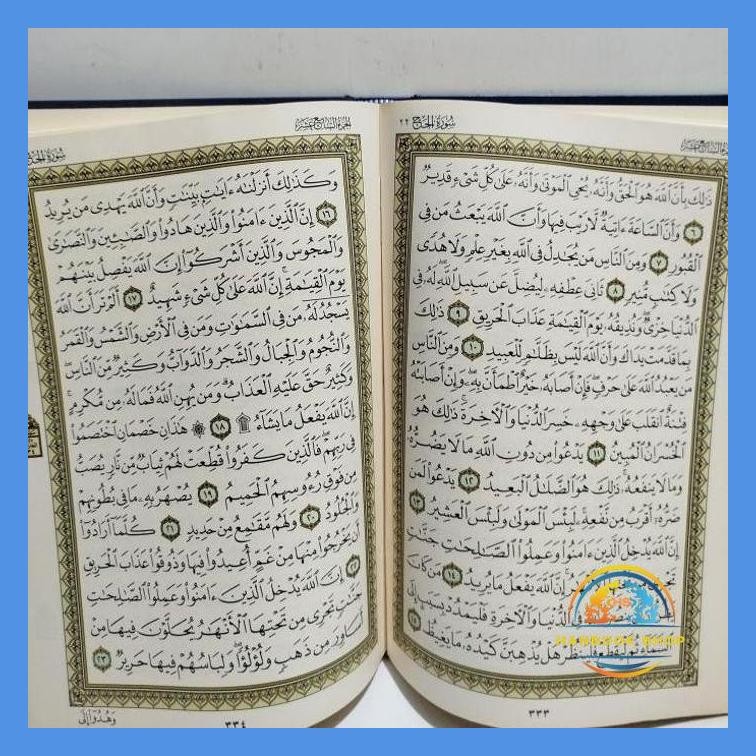 سُورَةُ الحَجِّ ٢٢
ذَٰلِكَ بِأَنَّ ٱللَّهَ هُوَ ٱلْحَقُّ وَأَنَّهُۥ يُحْىِ ٱلْمَوْتَىٰ وَأَنَّهُۥ عَلَىٰ كُلِّ شَىْءٍ قَدِيرٌ
٦ وَأَنَّ ٱلسَّاعَةَ ءَاتِيَةٌ لَّا رَيْبَ فِيهَا وَأَنَّ ٱللَّهَ يَبْعَثُ مَن فِى
ٱلْقُبُورِ ٧ وَمِنَ ٱلنَّاسِ مَن يُجَٰدِلُ فِى ٱللَّهِ بِغَيْرِ عِلْمٍ وَلَا هُدًى
وَلَا كِتَٰبٍ مُّنِيرٍ ٨ ثَانِىَ عِطْفِهِۦ لِيُضِلَّ عَن سَبِيلِ ٱللَّهِ لَهُۥ فِى
ٱلدُّنْيَا خِزْىٌ وَنُذِيقُهُۥ يَوْمَ ٱلْقِيَٰمَةِ عَذَابَ ٱلْحَرِيقِ ٩ ذَٰلِكَ
بِمَا قَدَّمَتْ يَدَاكَ وَأَنَّ ٱللَّهَ لَيْسَ بِظَلَّٰمٍ لِّلْعَبِيدِ ١٠ وَمِنَ ٱلنَّاسِ
مَن يَعْبُدُ ٱللَّهَ عَلَىٰ حَرْفٍ فَإِنْ أَصَابَهُۥ خَيْرٌ ٱطْمَأَنَّ بِهِۦ وَإِنْ أَصَابَتْهُ
فِتْنَةٌ ٱنقَلَبَ عَلَىٰ وَجْهِهِۦ خَسِرَ ٱلدُّنْيَا وَٱلْءَاخِرَةَ ذَٰلِكَ هُوَ
ٱلْخُسْرَانُ ٱلْمُبِينُ ١١ يَدْعُوا۟ مِن دُونِ ٱللَّهِ مَا لَا يَضُرُّهُۥ
وَمَا لَا يَنفَعُهُۥ ذَٰلِكَ هُوَ ٱلضَّلَٰلُ ٱلْبَعِيدُ ١٢ يَدْعُوا۟ لَمَن
ضَرُّهُۥٓ أَقْرَبُ مِن نَّفْعِهِۦ لَبِئْسَ ٱلْمَوْلَىٰ وَلَبِئْسَ ٱلْعَشِيرُ ١٣
إِنَّ ٱللَّهَ يُدْخِلُ ٱلَّذِينَ ءَامَنُوا۟ وَعَمِلُوا۟ ٱلصَّٰلِحَٰتِ جَنَّٰتٍ
تَجْرِى إِنَّ ٱللَّهَ يَفْعَلُ مَا يُرِيدُ ١٤ مَن كَانَ
فِى ٱلدُّنْيَا وَٱلْءَاخِرَةِ فَلْيَمْدُدْ بِسَبَبٍ إِلَى
هَلْ يُذْهِبَنَّ كَيْدُهُۥ مَا يَغِيظُ ١٥
٣٣٣
الجُزءُ السَّابِعَ عَشَرَ
وَكَذَٰلِكَ أَنزَلْنَٰهُ ءَايَٰتٍۭ بَيِّنَٰتٍ وَأَنَّ ٱللَّهَ يَهْدِى مَن يُرِيدُ
١٦ إِنَّ ٱلَّذِينَ ءَامَنُوا۟ وَٱلَّذِينَ هَادُوا۟ وَٱلصَّٰبِـِٔينَ وَٱلنَّصَٰرَىٰ
وَٱلْمَجُوسَ وَٱلَّذِينَ أَشْرَكُوٓا۟ إِنَّ ٱللَّهَ يَفْصِلُ بَيْنَهُمْ
يَوْمَ ٱلْقِيَٰمَةِ إِنَّ ٱللَّهَ عَلَىٰ كُلِّ شَىْءٍ شَهِيدٌ ١٧ أَلَمْ تَرَ أَنَّ ٱللَّهَ
يَسْجُدُ لَهُۥ مَن فِى ٱلسَّمَٰوَٰتِ وَمَن فِى ٱلْأَرْضِ وَٱلشَّمْسُ وَٱلْقَمَرُ
وَٱلنُّجُومُ وَٱلْجِبَالُ وَٱلشَّجَرُ وَٱلدَّوَآبُّ وَكَثِيرٌ مِّنَ ٱلنَّاسِ
وَكَثِيرٌ حَقَّ عَلَيْهِ ٱلْعَذَابُ وَمَن يُهِنِ ٱللَّهُ فَمَا لَهُۥ مِن مُّكْرِمٍ
إِنَّ ٱللَّهَ يَفْعَلُ مَا يَشَآءُ ۩ ١٨ ۞ هَٰذَانِ خَصْمَانِ ٱخْتَصَمُوا۟
فِى رَبِّهِمْ فَٱلَّذِينَ كَفَرُوا۟ قُطِّعَتْ لَهُمْ ثِيَابٌ مِّن نَّارٍ يُصَبُّ
مِن فَوْقِ رُءُوسِهِمُ ٱلْحَمِيمُ ١٩ يُصْهَرُ بِهِۦ مَا فِى بُطُونِهِمْ
وَٱلْجُلُودُ ٢٠ وَلَهُم مَّقَٰمِعُ مِنْ حَدِيدٍ ٢١ كُلَّمَآ أَرَادُوٓا۟
أَن يَخْرُجُوا۟ مِنْهَا مِنْ غَمٍّ أُعِيدُوا۟ فِيهَا وَذُوقُوا۟ عَذَابَ ٱلْحَرِيقِ
٢٢ إِنَّ ٱللَّهَ يُدْخِلُ ٱلَّذِينَ ءَامَنُوا۟ وَعَمِلُوا۟ ٱلصَّٰلِحَٰتِ
جَنَّٰتٍ تَجْرِى مِن تَحْتِهَا ٱلْأَنْهَٰرُ يُحَلَّوْنَ فِيهَا مِنْ
أَسَاوِرَ مِن ذَهَبٍ وَلُؤْلُؤًا وَلِبَاسُهُمْ فِيهَا حَرِيرٌ ٢٣
وَهُدُوٓا۟ إِلَى
٣٣٤